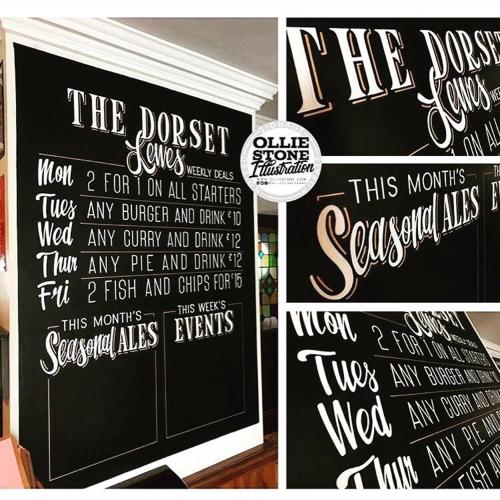 THE DORSET
Lewes
WEEKLY DEALS
Mon 2 FOR 1 ON ALL STARTERS
Tues ANY BURGER AND DRINK £10
Wed ANY CURRY AND DRINK £12
Thur ANY PIE AND DRINK £12
Fri 2 FISH AND CHIPS FOR £15
THIS MONTH'S
Seasonal ALES
THIS WEEK'S
EVENTS
OLLIE
STONE
Illustration
WWW.OLLIESTONE.COM
THE DORSET
Lewes WEE
1 ON ALL
THIS MONTH'S
Seasonal ALES
Mon 2 FOR 1 ON ALL STARTERS
Lewes WEEKLY DEALS
Tues ANY BURGER AND DR
Wed ANY CURRY AND DR
Thur ANY PIE AND
FISH